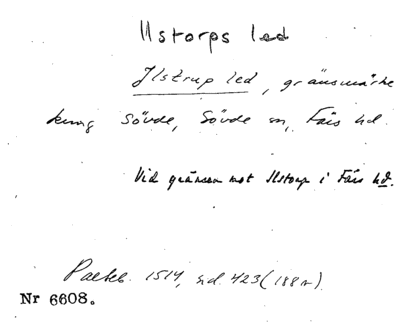 Ilstorps led
Jlstrup led, gränsmärke
kring Sövde, Sövde sn, Färs hd.
Vid gränsen mot Ilstorp i Färs hd.
Palteb. 1514, sid. 423 (188r).
Nr 6608.